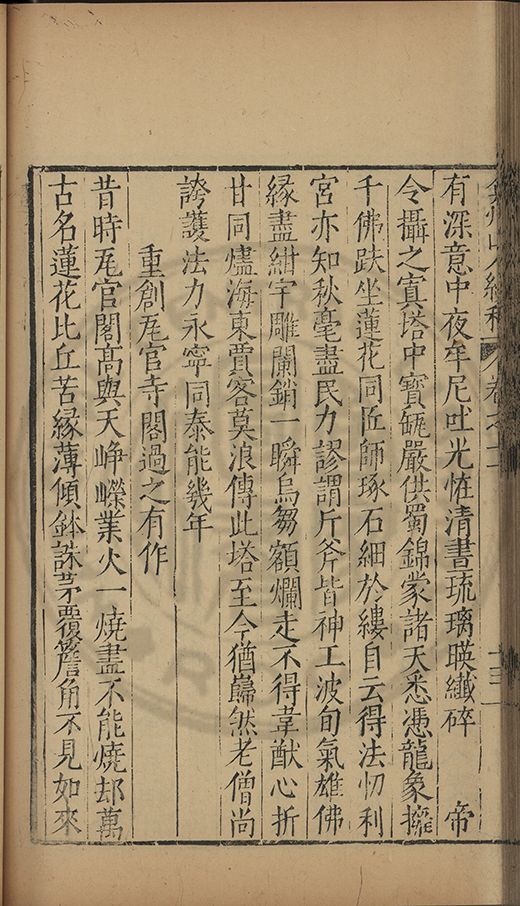 弇州山人續稿 卷之十 十三
有深意中夜牟尼吐光恠清晝琉璃暎纖碎　帝
令攝之寘塔中寶甀嚴供蜀錦蒙諸天悉憑龍象擁
千佛趺坐蓮花同匠師琢石細於縷自云得法忉利
宮亦知秋毫盡民力謬謂斤斧皆神工波旬氣雄佛
緣盡紺宇雕闌銷一瞬烏芻額爛走不得韋猷心折
甘同燼海東賈客莫浪傳此塔至今猶巋然老僧尚
誇護法力永寧同泰能幾年
重創瓦官寺閣過之有作
昔時瓦官閣高與天崢嶸業火一燒盡不能燒却萬
古名蓮花比丘苦緣薄傾鉢誅茅覆簷角不見如來